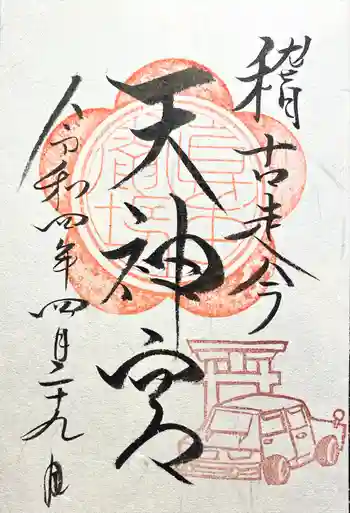 稽古走今
天神宮
令和四年四月二十九日